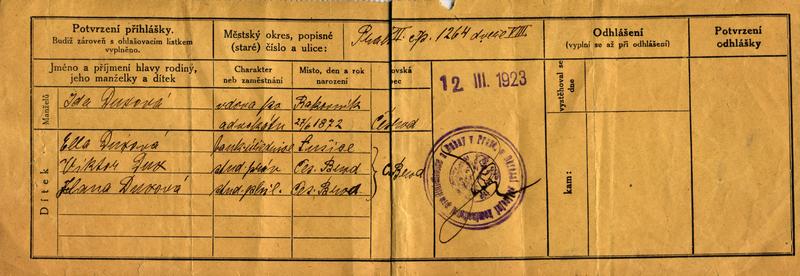 Potvrzení přihlášky.
Budiž zároveň s ohlašovacím lístkem
vyplněno.
Městský okres, popisné
(staré) číslo a ulice:
Praha II. čp. 1264
Odhlášení
(vyplní se až při odhlášení)
Potvrzení
odhlášky
Jméno a příjmení hlavy rodiny,
jeho manželky a dítek
Charakter
neb zaměstnání
Místo, den a rok
narození
ovská
ec
12. III. 1923
vystěhoval se
dne
kam:
Manželů
Ida Duxová
vdova po
advokátu
Rakovník
27/6 1872
Dítek
Ella Duxová
Viktor Dux
stud. práv
Čes. Brod
Č. Brod
Hana Duxová
Čes. Brod